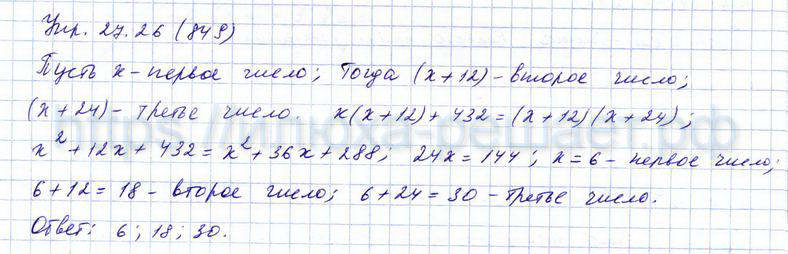 Упр. 27.26 (849)
Пусть x - первое число; Тогда (x+12) - второе число;
(x+24) - третье число. x(x+12) + 432 = (x+12)(x+24);
x² + 12x + 432 = x² + 36x + 288; 24x = 144; x = 6 - первое число;
6 + 12 = 18 - второе число; 6 + 24 = 30 - третье число.
Ответ: 6; 18; 30.